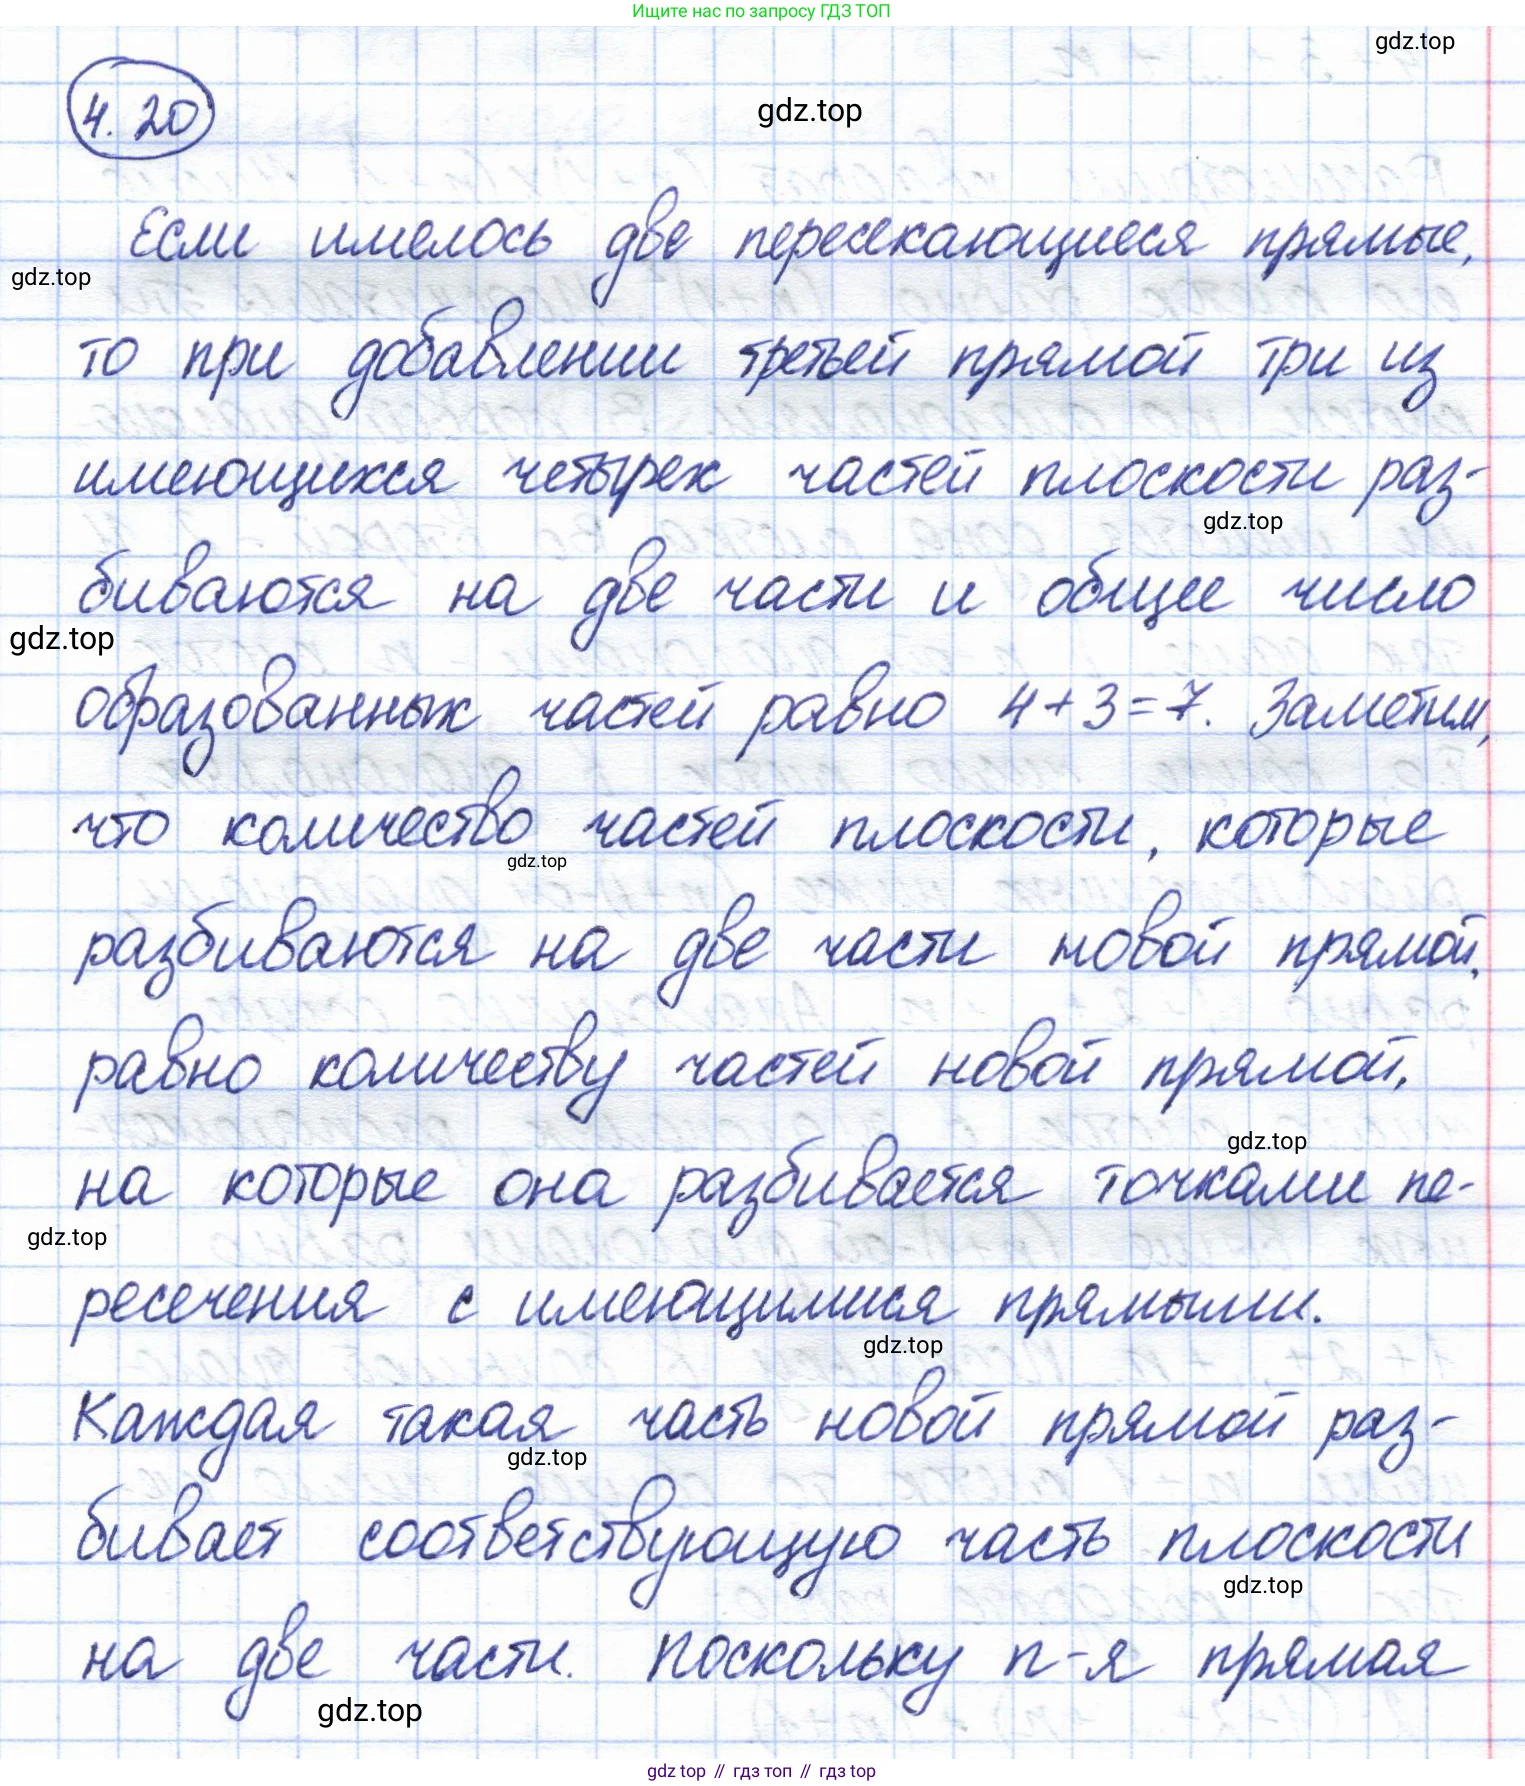 Ищите нас по запросу ГДЗ ТОП
gdz.top
4.20
gdz.top
Если имелось две пересекающиеся прямые,
gdz.top
то при добавлении третьей прямой три из
имеющихся четырех частей плоскости раз-
gdz.top
биваются на две части и общее число
gdz.top
образованных частей равно 4+3=7. Заметим,
что количество частей плоскости, которые
gdz.top
разбиваются на две части новой прямой,
равно количеству частей новой прямой,
gdz.top
на которые она разбивается точками пе-
gdz.top
ресечения с имеющимися прямыми.
gdz.top
Каждая такая часть новой прямой раз-
gdz.top
бивает соответствующую часть плоскости
gdz.top
на две части. Поскольку n-я прямая
gdz.top
gdz top // гдз топ // гдз top